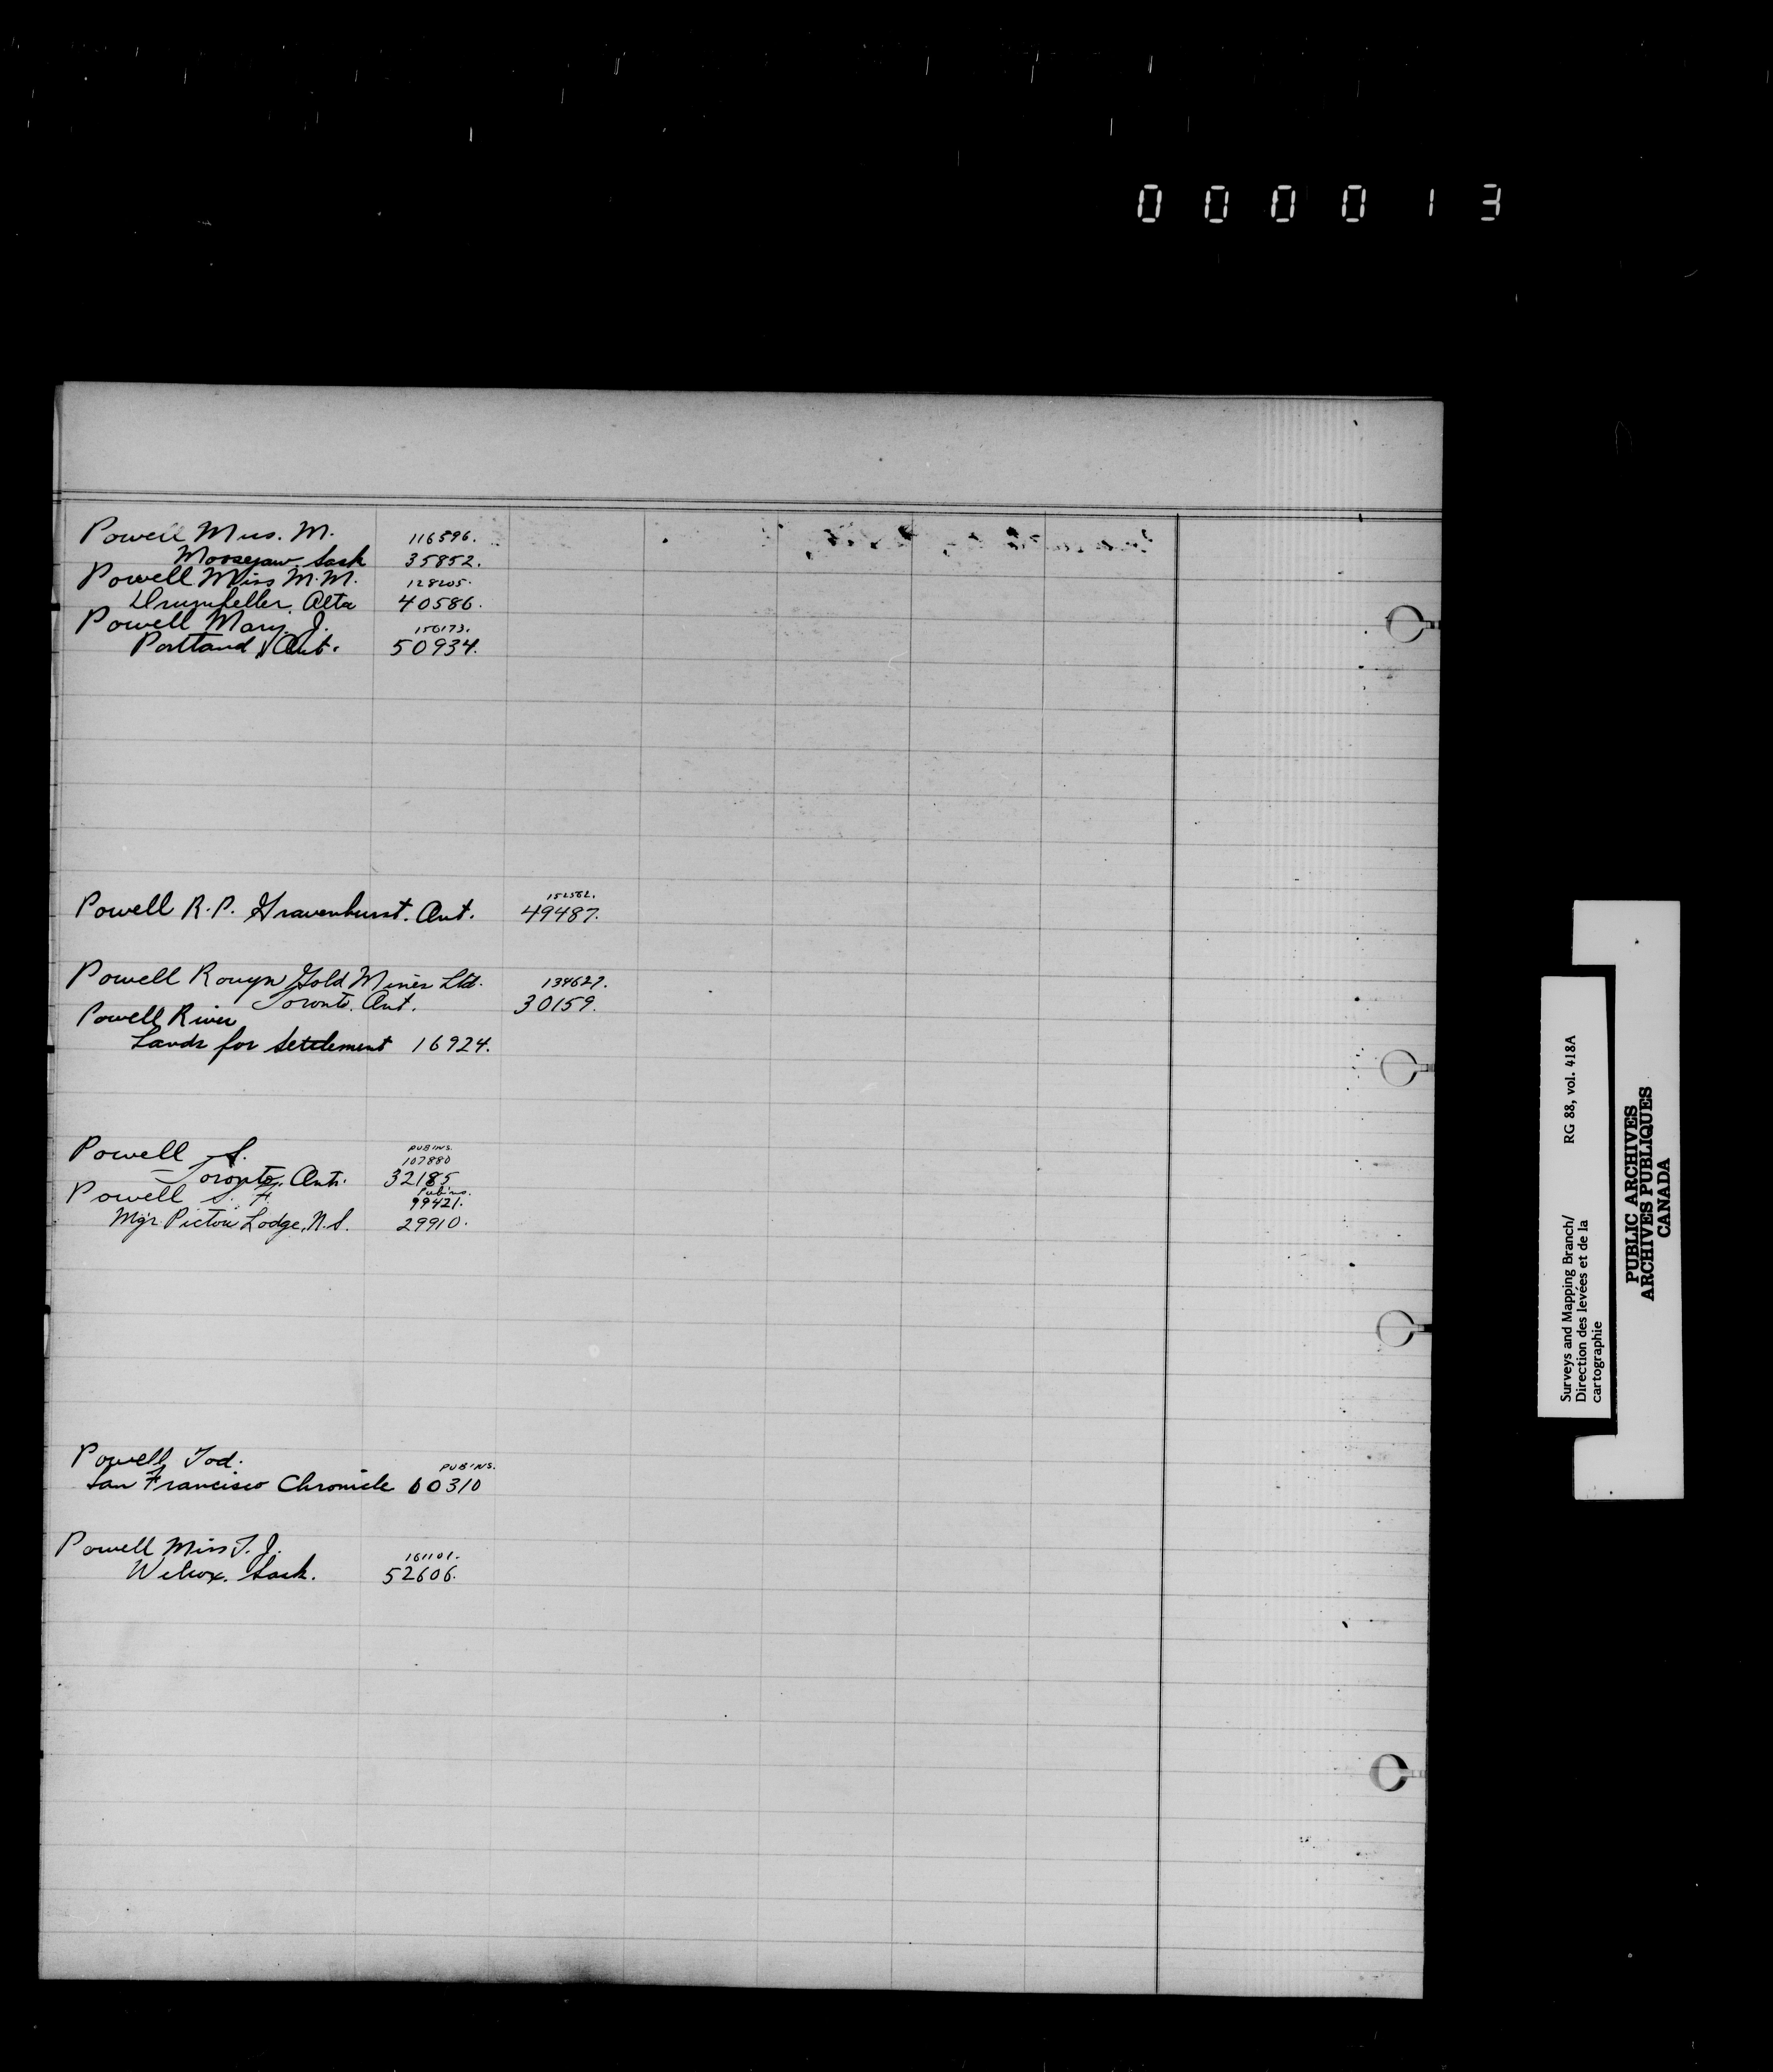 000013
Powell Mrs. M. 116596.
Moosejaw Sask 35852.
Powell Miss M.M. 128205.
Drumheller, Alta 40586.
Powell Mary J. 156173.
Portland, Ont. 50934.
152562.
Powell R.P. Gravenhurst. Ont. 49487.
Powell Rouyn Gold Mines Ltd. 134627.
Toronto. Ont. 30159.
Powell River
Lands for Settlement 16924.
PUBINS.
Powell S. 107880
Toronto, Ont. 32185
Pubins.
Powell S. F. 99421.
Mgr Pictou Lodge, N.S. 29910.
Powell Tod. PUBINS.
San Francisco Chronicle 60310
Powell Miss T.J. 161101.
Wilcox. Sask. 52606.
Surveys and Mapping Branch/ RG 88, vol. 418A
Direction des levées et de la
cartographie
PUBLIC ARCHIVES
ARCHIVES PUBLIQUES
CANADA